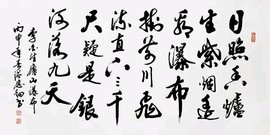 日照香爐
生紫烟遥
看瀑布
掛前川飛
流直下三千
尺疑是銀
河落九天
李白望廬山瀑布
丙申年